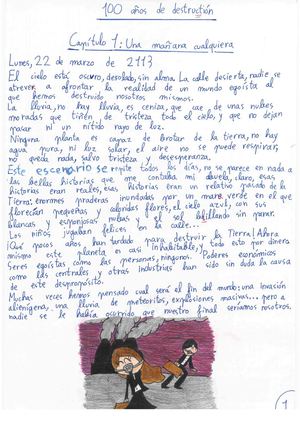 100 años de destrucción
Capítulo 1: Una mañana cualquiera
Lunes, 22 de marzo de 2113
El cielo está oscuro, desolado, sin alma. La calle desierta, nadie se
atrever a afrontar la realidad de un mundo egoísta al
que hemos destruido nosotros mismos.
La lluvia, no hay lluvia, es ceniza, que cae, de unas nubes
moradas que tiñen de tristeza todo el cielo, y que no dejan
pasar ni un nítido rayo de luz.
Ninguna planta es capaz de brotar de la tierra, no hay
agua pura, ni luz solar, el aire no se puede respirar,
no queda nada, salvo tristeza y desesperanza.
Este escenario se repite todos los días, no se parece en nada a
las bellas historias que me contaba mi abuelo, claro, esas
historias eran reales, esas historias eran un relativo pasado de la
Tierra: enormes praderas inundadas por un mar verde en el que
florecían pequeñas y coloridas flores, el cielo azul, con sus
blancas y esponjosas nubes y el sol brillando sin parar.
Los niños jugaban felices en la calle...
¡Qué pocos años han tardado para destruir la Tierra! Ahora
mismo este planeta es casi inhabitable, y todo esto por dinero
Seres egoístas como las personas, ningunos. Poderes económicos
como las centrales y otras industrias han sido sin duda la causa
de este despropósito.
Muchas veces hemos pensado cual será el fin del mundo; una invasión
alienígena, una lluvia de meteoritos, explosiones masivas... pero a
nadie se le había ocurrido que nuestro final seríamos nosotros.
1